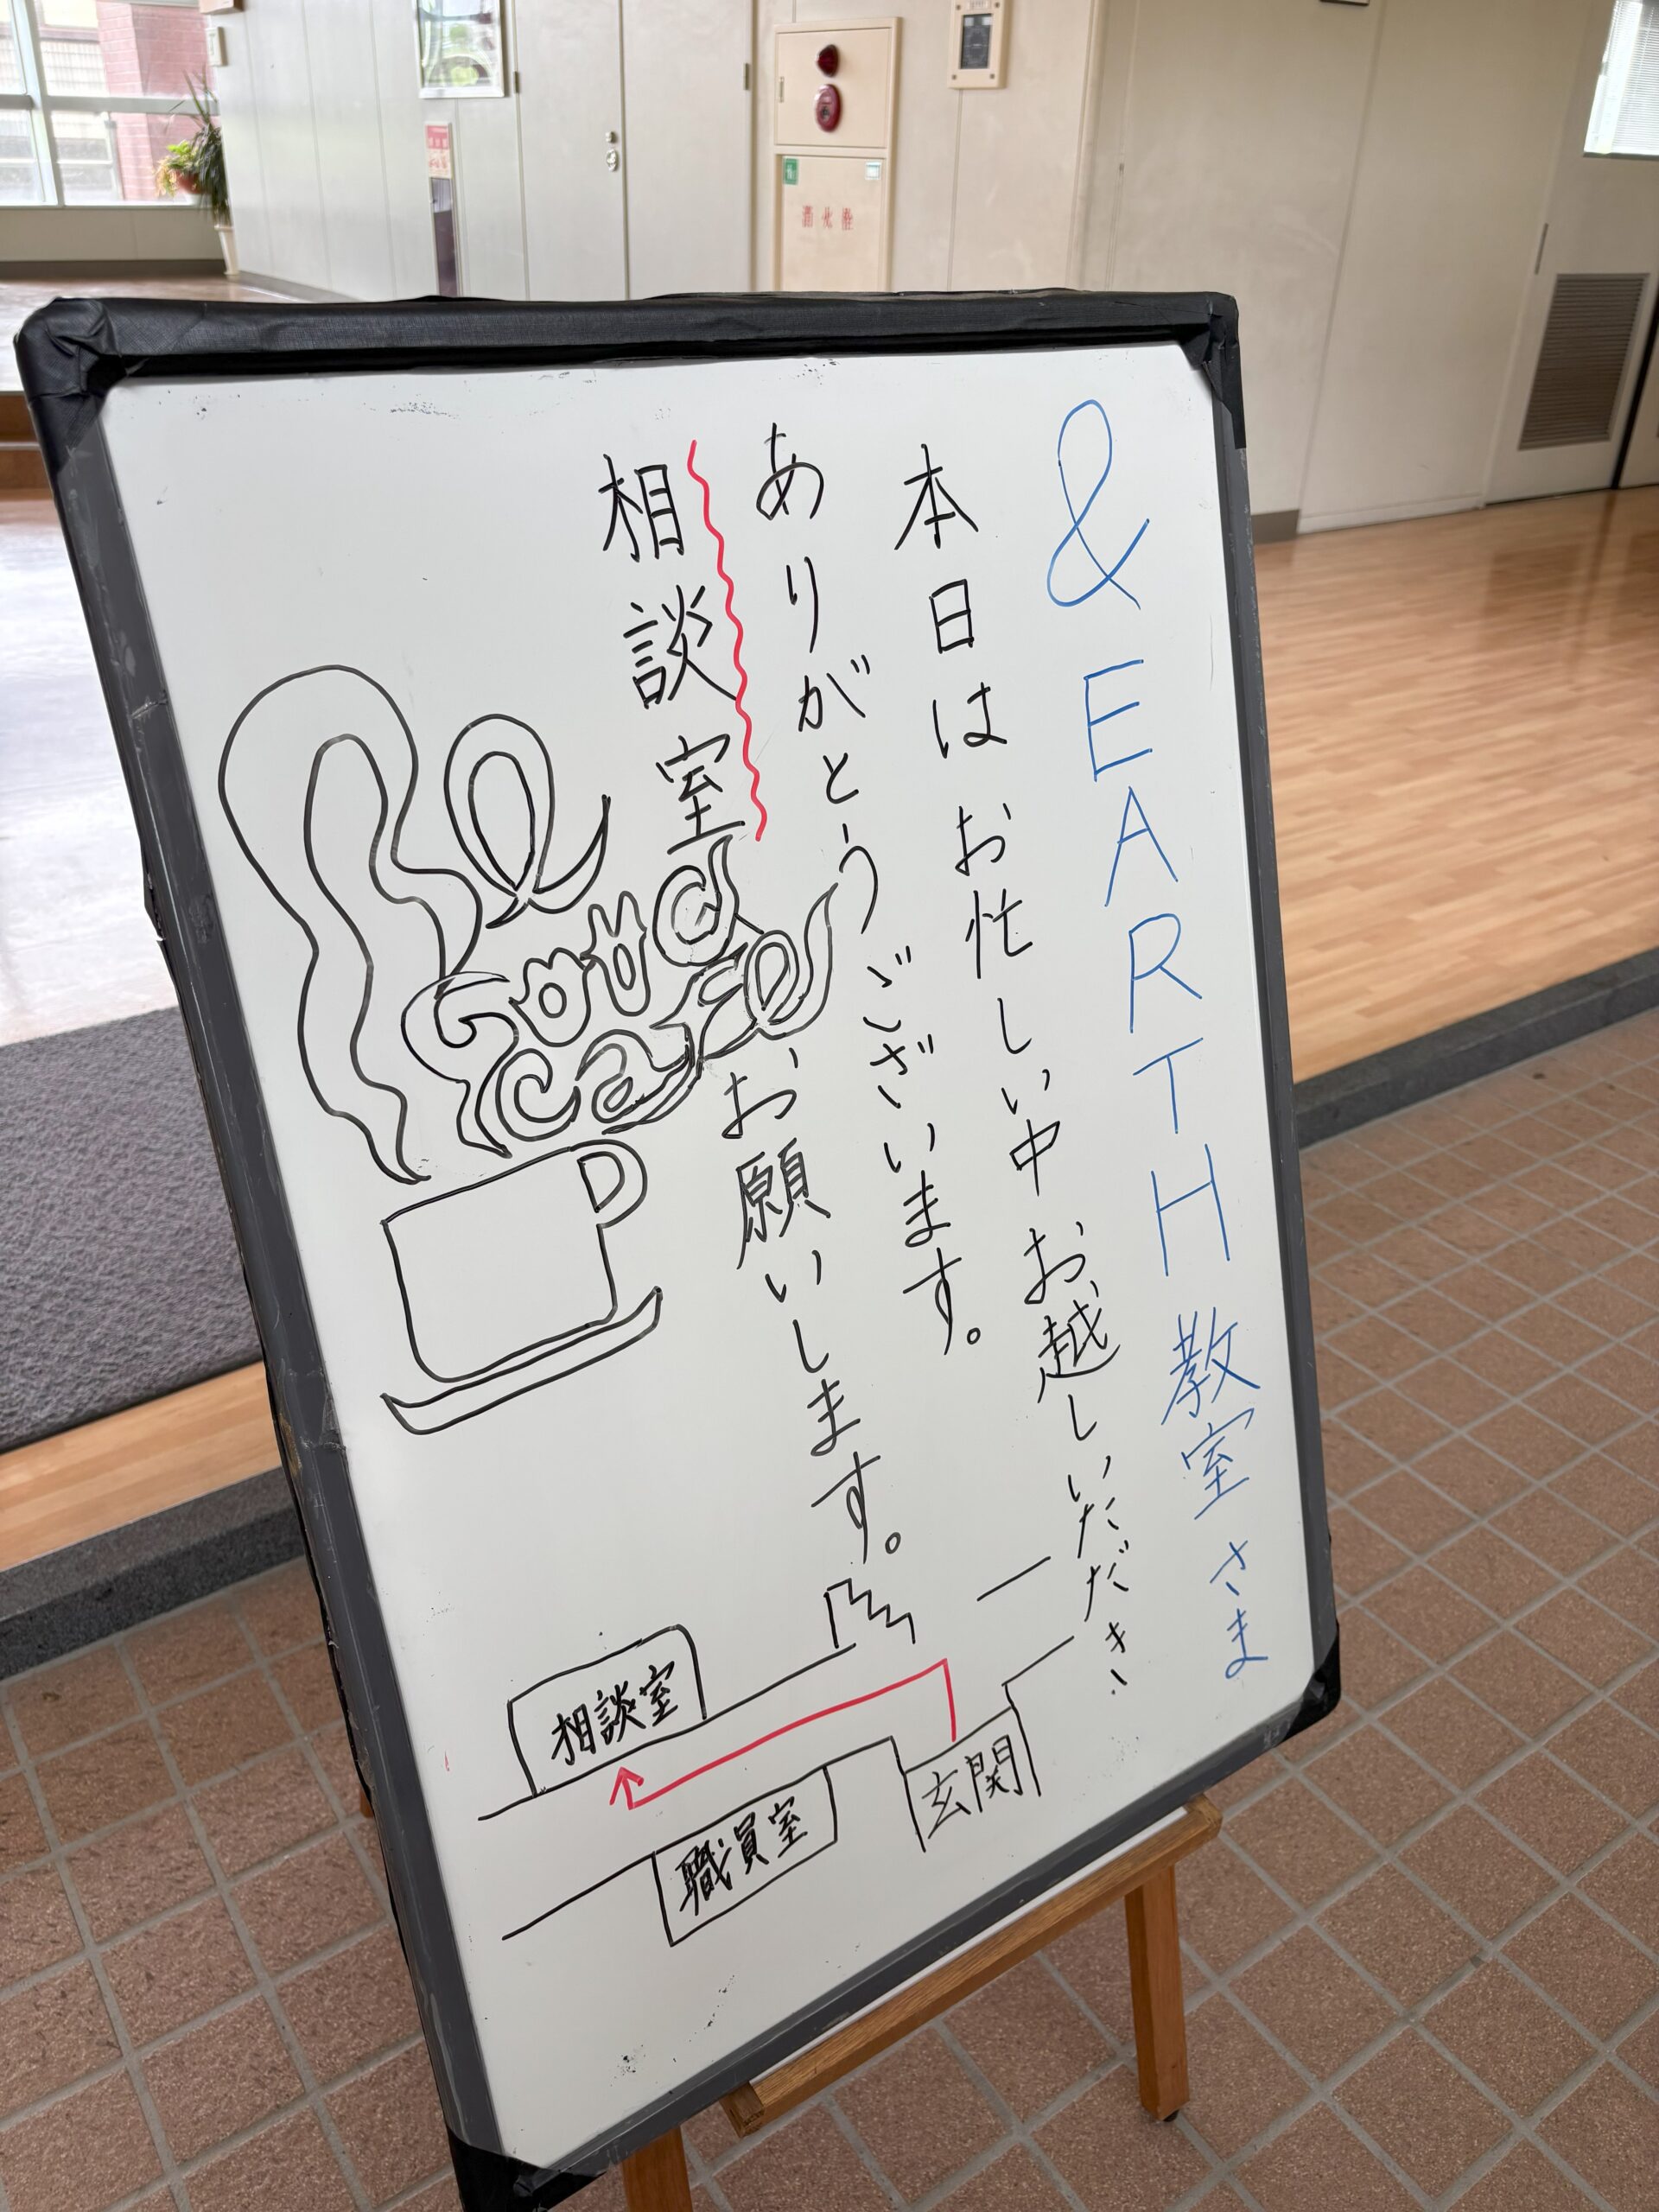 & EARTH 教室さま
本日はお忙しい中お越しいただき、
ありがとうございます。
相談室
お願いします。
Good
cafe
相談室
職員室
玄関
消火栓